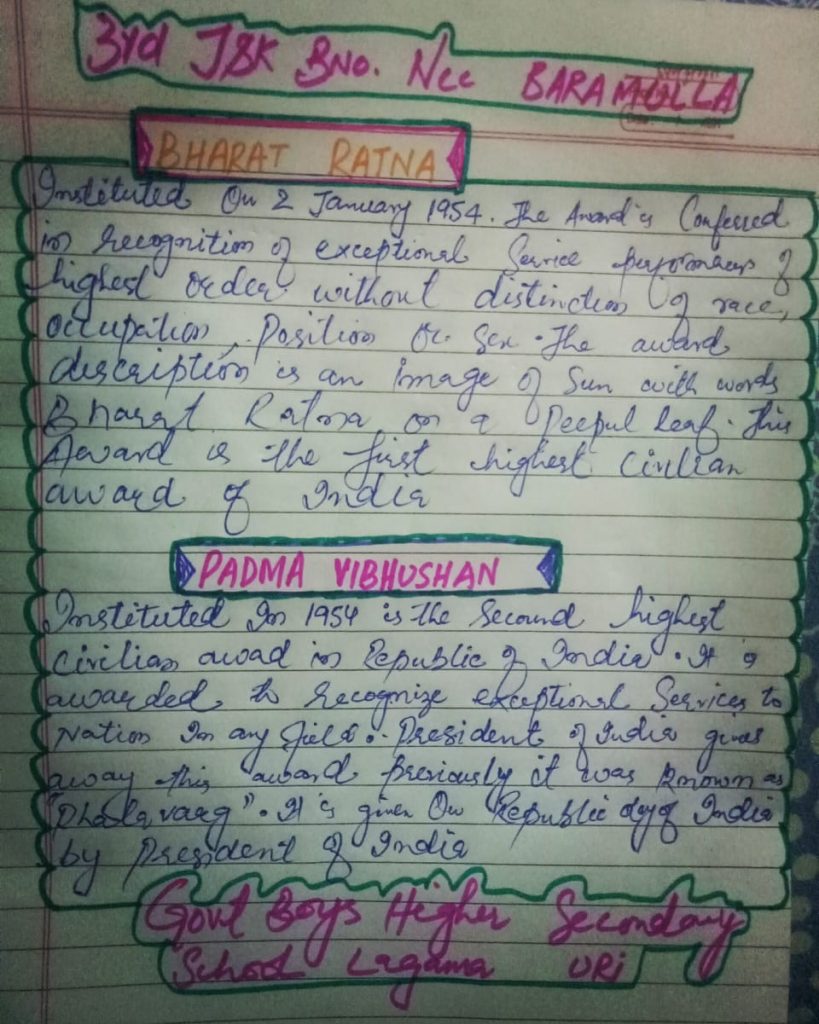 3rd J&K BNo. Ncc BARAMULLA
BHARAT RATNA
Instituted On 2 January 1954. The Award is Conferred
in recognition of exceptional Service performance of
highest order without distinction of race,
occupation, Position or Sex. The award
description is an image of Sun with words
Bharat Ratna on a Peepul leaf. This
Award is the first highest Civilian
award of India
PADMA VIBHUSHAN
Instituted In 1954 is the Second highest
Civilian awad in Republic of India. It is
awarded to recognize exceptional Services to
Nation In any field. President of India gives
away this award previously it was known as
It is given On Republic day of India
by President of India
Govt Boys Higher Secondary
School Lagama URi